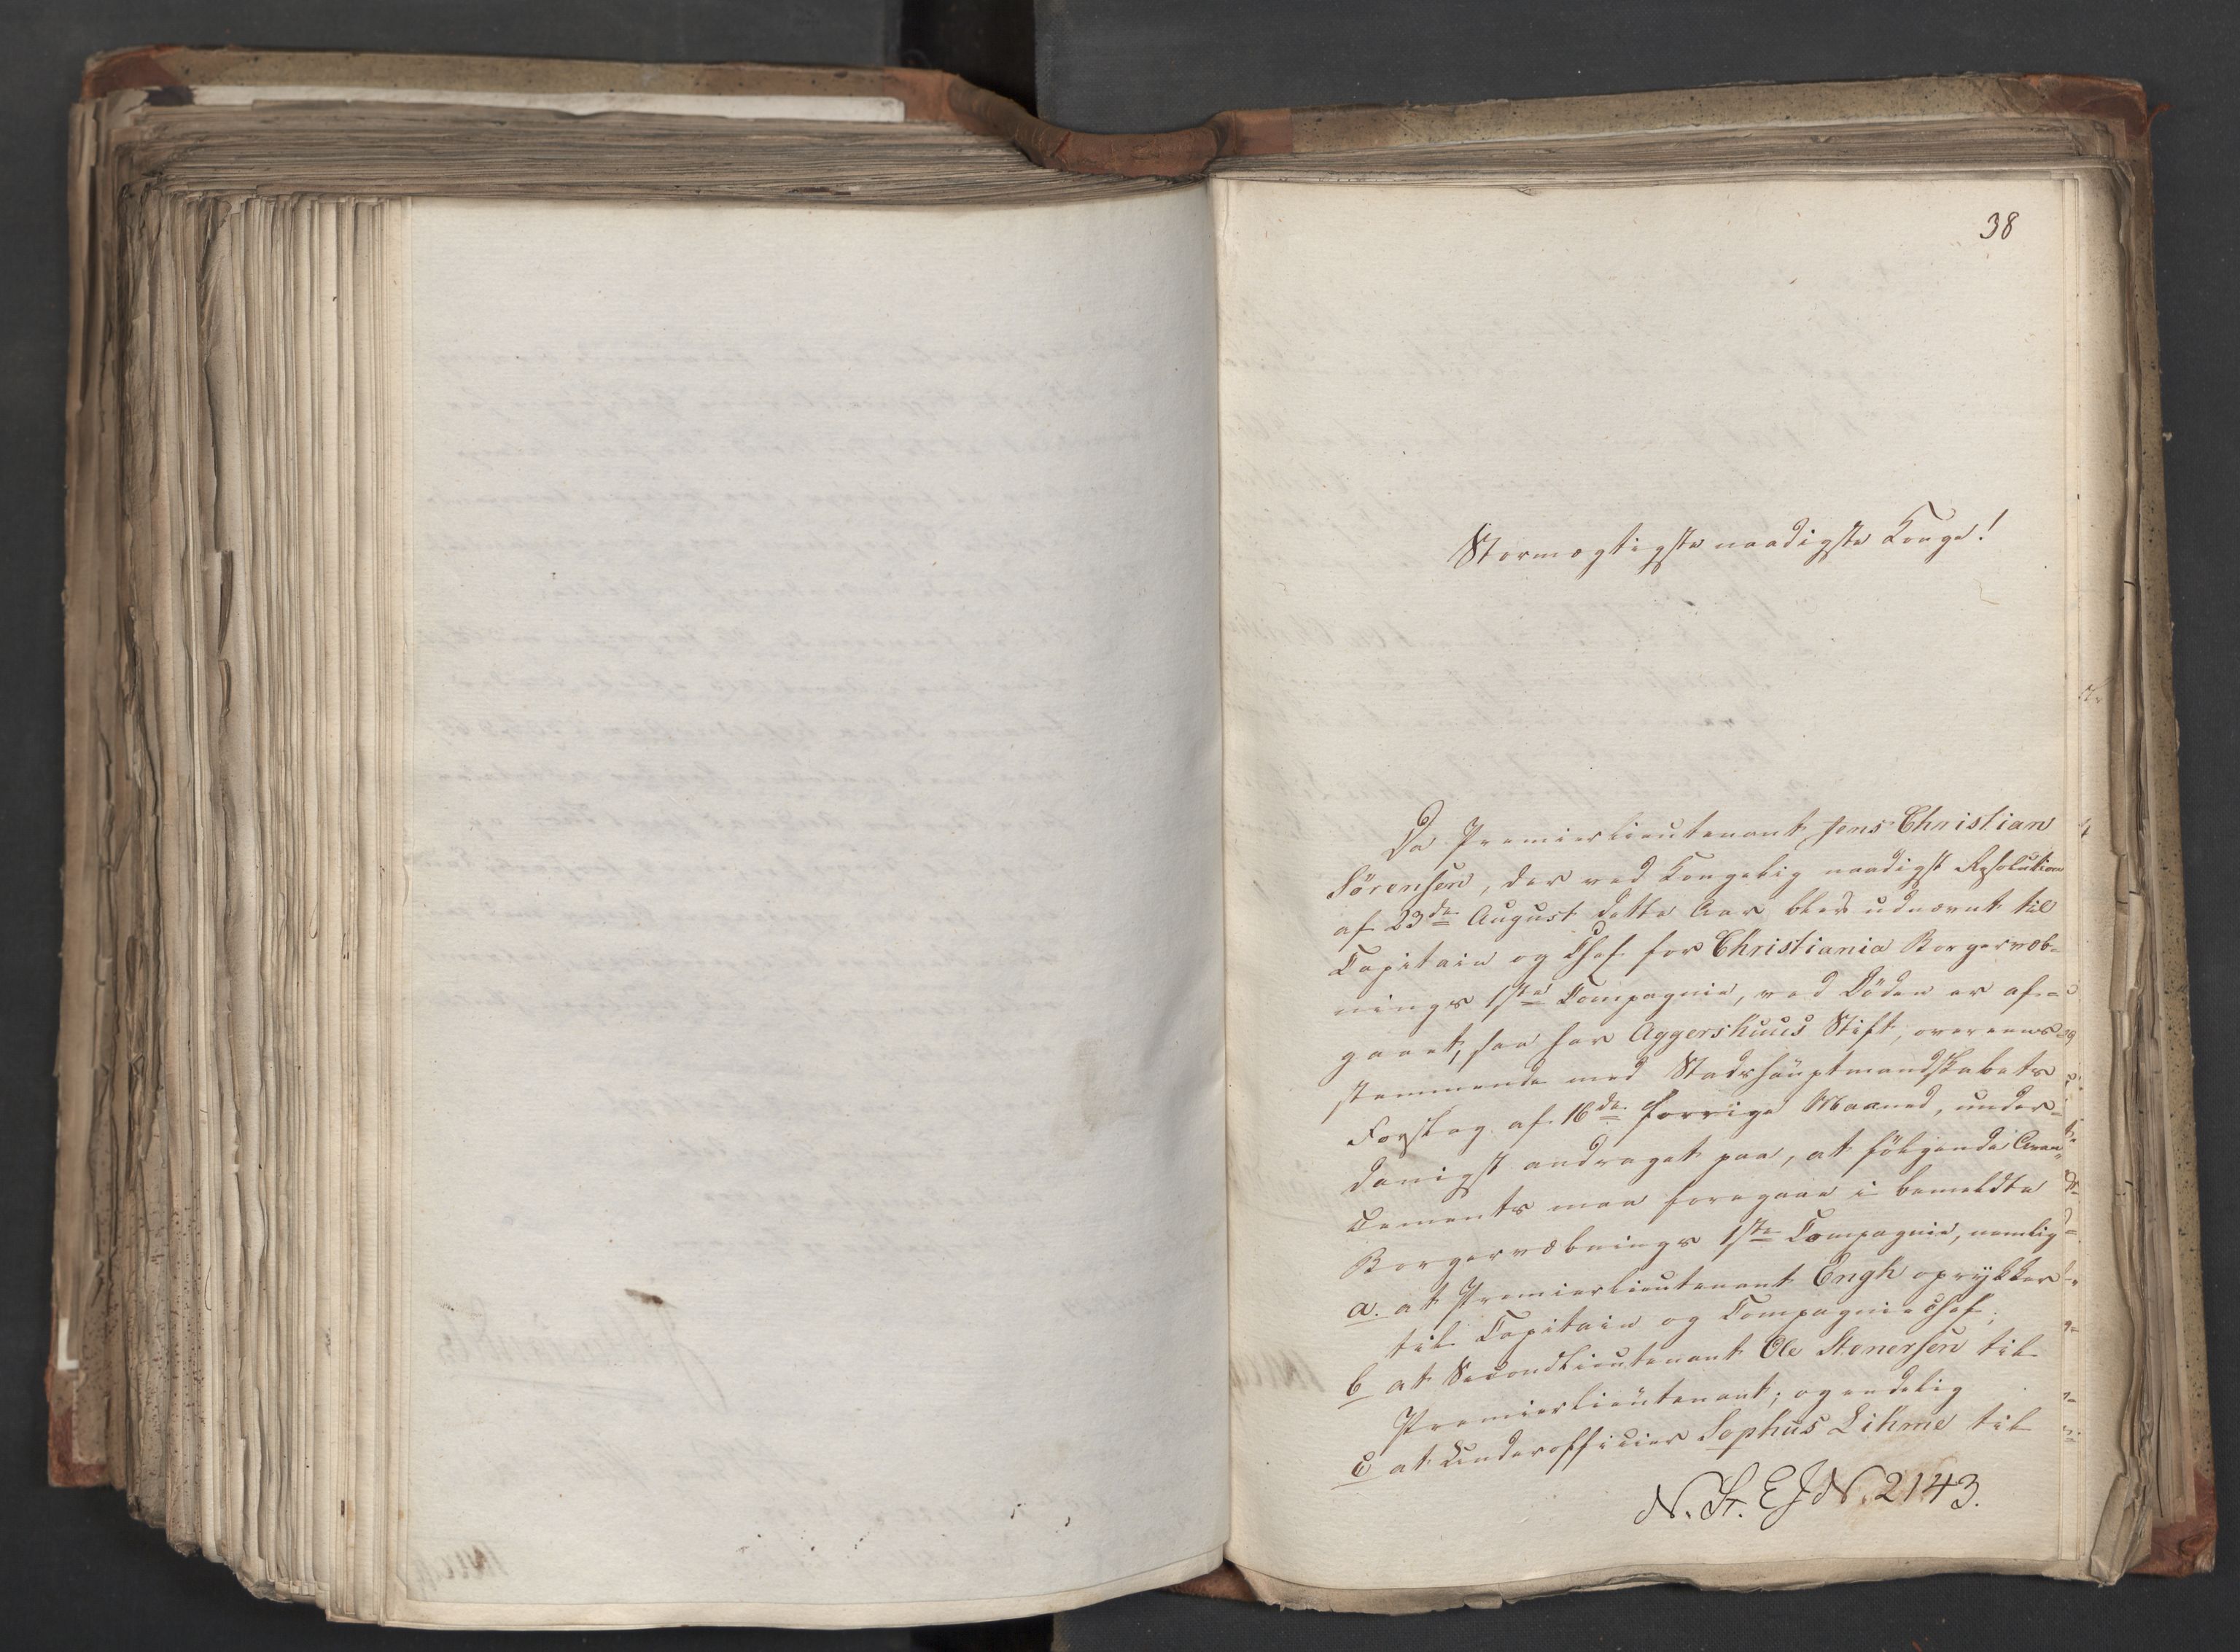 38
Stormægtigste naadigste Konge!
Da Premierlieutenant Jens Christian
Sörensen, der ved Kongelig naadigst Resolution
af 23de August dette Aar blev udnævnt til
Capitain og Chef for Christiania Borgervæb-
nings 1ste Compagnie, ved Döden er af-
gaaet, saa har Aggershuus Stift, overeens-
stemmende med Stadshauptmandskabets
Forslag af 16de forrige Maaned, under-
danigst andraget paa, at fölgende Avan-
cements maa foregaae i bemeldte
Borgervæbnings 1ste Compagnie, nemlig
a. at Premierlieutenant Engh oprykker
til Capitain og Compagniechef;
b at Secondlieutenant Ole Stenersen til
Premierlieutenant; og endelig
c at Underofficier Sophus Lihme til
N. Sr. EJN. 2143.